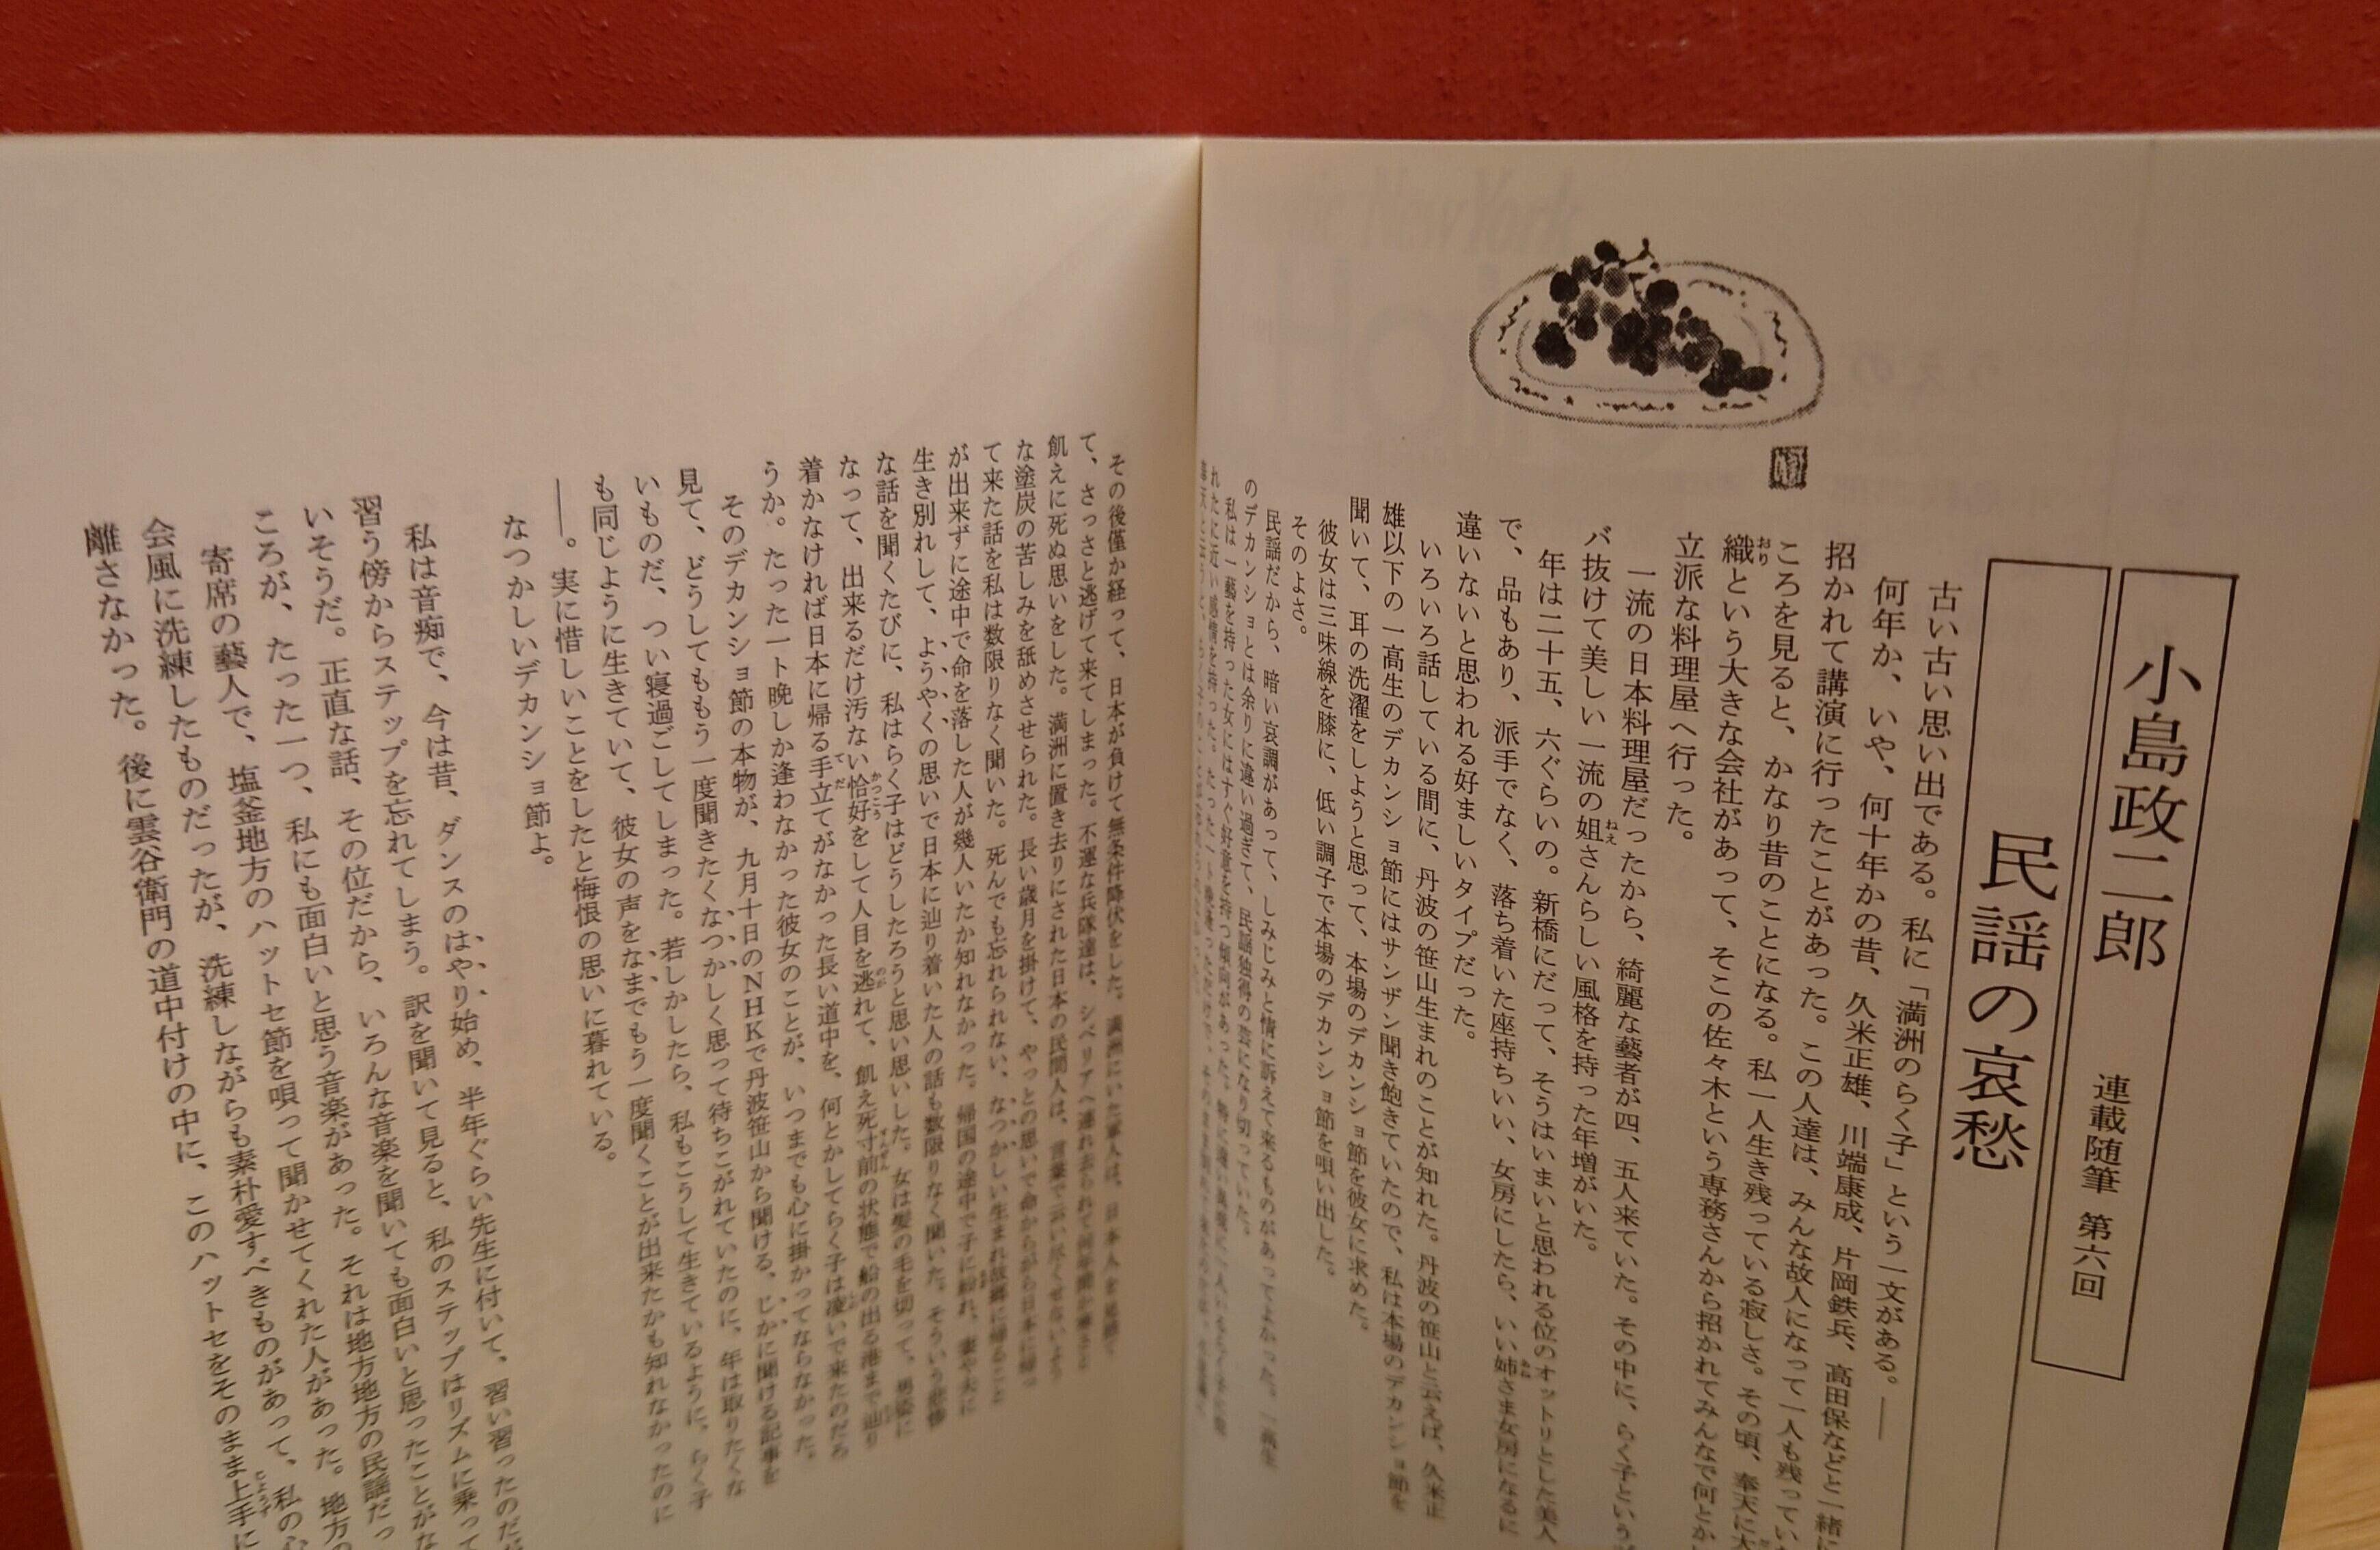 小島政二郎 連載随筆 第六回
民謡の哀愁
古い古い思い出である。私に「満洲のらく子」という一文がある。――
何年か、いや、何十年かの昔、久米正雄、川端康成、片岡鉄兵、高田保などと一緒に
招かれて講演に行ったことがあった。この人達は、みんな故人になって一人も残ってい
ころを見ると、かなり昔のことになる。私一人生き残っている寂しさ。その頃、奉天に大
織という大きな会社があって、そこの佐々木という専務さんから招かれてみんなで何とか
立派な料理屋へ行った。
一流の日本料理屋だったから、綺麗な藝者が四、五人来ていた。その中に、らく子という
バ抜けて美しい一流の姐さんらしい風格を持った年増がいた。
年は二十五、六ぐらいの。新橋にだって、そうはいまいと思われる位のオットリとした美人
で、品もあり、派手でなく、落ち着いた座持ちいい、女房にしたら、いい姉さま女房になるに
違いないと思われる好ましいタイプだった。
いろいろ話している間に、丹波の笹山生まれのことが知れた。丹波の笹山と云えば、久米正
雄以下の一高生のデカンショ節にはサンザン聞き飽きていたので、私は本場のデカンショ節を
聞いて、耳の洗濯をしようと思って、本場のデカンショ節を彼女に求めた。
彼女は三味線を膝に、低い調子で本場のデカンショ節を唄い出した。
そのよさ。
民謡だから、暗い哀調があって、しみじみと情に訴えて来るものがあってよかった。一高生
のデカンショとは余りに違い過ぎて、民謡独得の芸になり切っていた。
私は一藝を持った女にはすぐ好意を持つ傾向があった。
れたに近い感情を持った。
その後僅か経って、日本が負けて無条件降伏をした。満洲にいた軍人は、日本人を見捨て
て、さっさと逃げて来てしまった。不運な兵隊達は、シベリアへ連れ去られて何年間か寒さと
飢えに死ぬ思いをした。満洲に置き去りにされた日本の民間人は、言葉で云い尽くせないよう
な塗炭の苦しみを舐めさせられた。長い歳月を掛けて、やっとの思いで命からがら日本に帰っ
て来た話を私は数限りなく聞いた。死んでも忘れられない、なつかしい生まれ故郷に帰ること
が出来ずに途中で命を落した人が幾人いたか知れなかった。帰国の途中で子に紛れ、妻や夫に
生き別れして、ようやくの思いで日本に辿り着いた人の話も数限りなく聞いた。そういう悲惨
な話を聞くたびに、私はらく子はどうしたろうと思い思いした。女は髪の毛を切って、男姿に
なって、出来るだけ汚ない恰好をして人目を逃れて、飢え死寸前の状態で船の出る港まで辿り
着かなければ日本に帰る手立てがなかった長い道中を、何とかしてらく子は凌いで来たのだろ
うか。たった一ト晩しか逢わなかった彼女のことが、いつまでも心に掛かってならなかった。
そのデカンショ節の本物が、九月十日のNHKで丹波笹山から聞ける、じかに聞ける記事を
見て、どうしてももう一度聞きたくなつかしく思って待ちこがれていたのに、年は取りたくな
いものだ、つい寝過ごしてしまった。若しかしたら、私もこうして生きているように、らく子
も同じように生きていて、彼女の声をなまでもう一度聞くことが出来たかも知れなかったのに
――。実に惜しいことをしたと悔恨の思いに暮れている。
なつかしいデカンショ節よ。
私は音痴で、今は昔、ダンスのはやり始め、半年ぐらい先生に付いて、習い習ったのだ
習う傍からステップを忘れてしまう。訳を聞いて見ると、私のステップはリズムに乗って
いそうだ。正直な話、その位だから、いろんな音楽を聞いても面白いと思ったことがな
ころが、たった一つ、私にも面白いと思う音楽があった。それは地方地方の民謡だっ
寄席の藝人で、塩釜地方のハットセ節を唄って聞かせてくれた人があった。地方の
会風に洗練したものだったが、洗練しながらも素朴愛すべきものがあって、私の心
離さなかった。後に雲谷衛門の道中付けの中に、このハットセをそのまま上手に